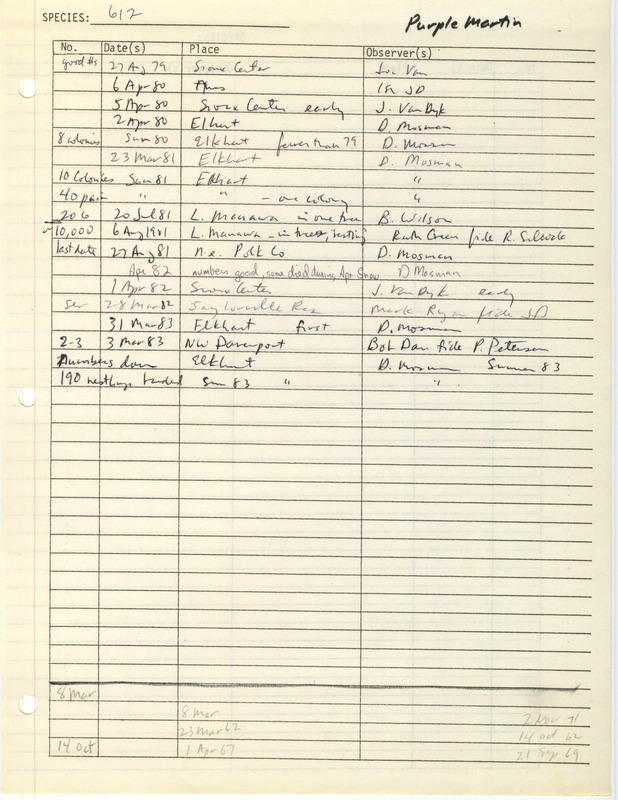 SPECIES: 612
Purple Martin
No. Date(s) Place Observer(s)
good #s 27 Aug 79 Sioux Center Van
6 Apr 80 Ames JD
5 Apr 80 Sioux Center early J. VanDyk
2 Apr 80 Elkhart D. Mosman
8 colonies Sum 80 Elkhart fewer than 79 D. Mosman
23 Mar 81 Elkhart D. Mosman
10 Colonies Sum 81 Elkhart "
40 pair " " - one colony "
206 20 Jul 81 L. Manawa in one tree B. Wilson
~10,000 6 Aug 1981 L. Manawa - in trees, resting Ruth Green fide R. Silcock
last date 27 Aug 81 n.e. Polk Co D. Mosman
Apr 82 numbers good, some died during Apr Snow D Mosman
1 Apr 82 Sioux Center J. VanDyk early
sev 28 Mar 82 Saylorville Res Mark Ryan fide JD
31 Mar 83 Elkhart first D. Mosman
2-3 3 Mar 83 NW Davenport Bob Dau fide P. Petersen
numbers down Elkhart D. Mosman Summer 83
190 nestlings banded Sum 83 " "
8 Mar
8 Mar 2 Nov 71
23 Mar 62 14 Oct 62
14 Oct 1 Apr 67 21 Sep 69